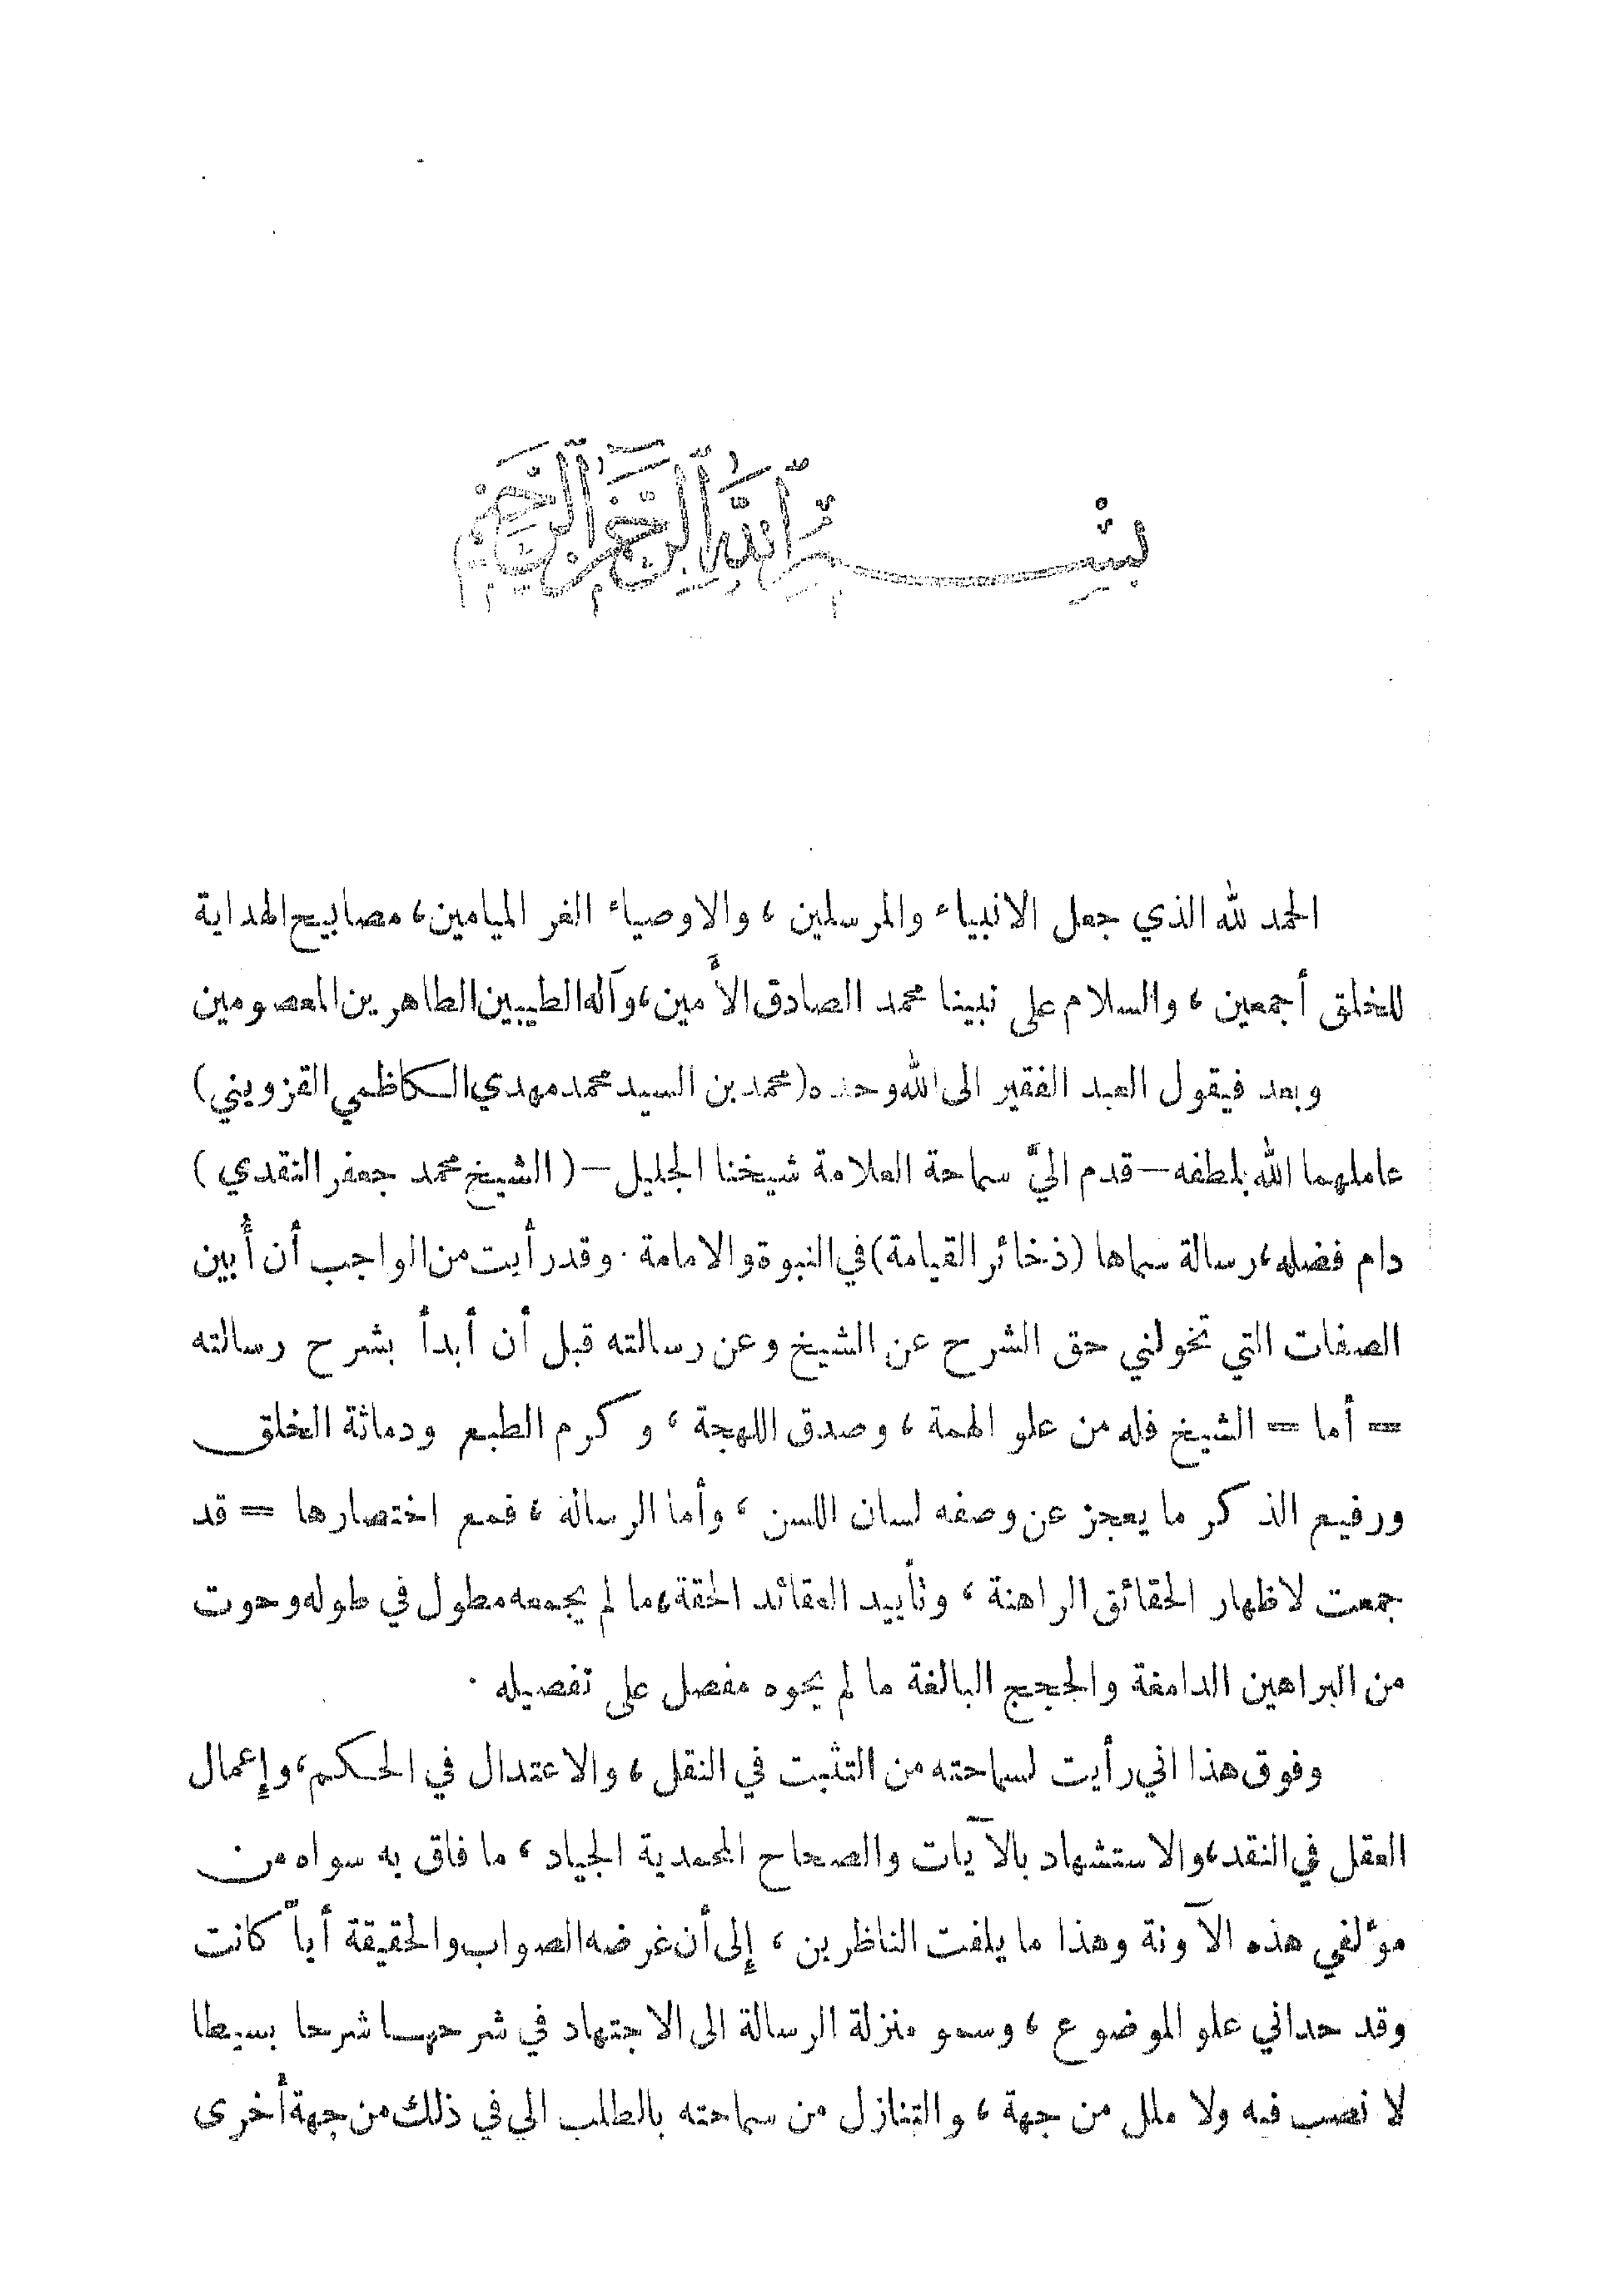 بِسْمِ اللَّهِ الرَّحْمَٰنِ الرَّحِيمِ
الحمد لله الذي جعل الانبياء والمرسلين ، والاوصياء الغر الميامين ، مصابيح الهداية
للخلق أجمعين ، والسلام على نبينا محمد الصادق الأَّمين ، وآله الطيبين الطاهرين المعصومين
وبعد فيقول العبد الفقير الى الله وحده ( محمد بن السيد محمد مهدي الكاظمي القزويني )
عاملهما الله بلطفه — قدم اليَّ سماحة العلامة شيخنا الجليل — ( الشيخ محمد جعفر النقدي )
دام فضله ، رسالة سماها ( ذخائر القيامة ) في النبوة والامامة . وقد رأيت من الواجب أن أُبين
الصفات التي تخولني حق الشرح عن الشيخ وعن رسالته قبل أن أبدأ بشرح رسالته
= أما = الشيخ فله من علو الهمة ، وصدق اللهجة ، وكرم الطبع ودماثة الخلق
ورفيع الذكر ما يعجز عن وصفه لسان اللسن ، وأما الرسالة ، فمع اختصارها = قد
جمعت لاظهار الحقائق الراهنة ، وتأييد العقائد الحقة ، ما لم يجمعه مطول في طوله وحوت
من البراهين الدامغة والحجج البالغة ما لم يحوه مفصل على تفصيله .
وفوق هذا اني رأيت لسماحته من التثبت في النقل ، والاعتدال في الحكم ، وإعمال
العقل في النقد ، والاستشهاد بالآيات والصحاح المحمدية الجياد ، ما فاق به سواه من
مؤلفي هذه الآونة وهذا ما يلفت الناظرين ، إلى أن غرضه الصواب والحقيقة أياً كانت
وقد حداني علو الموضوع ، وسمو منزلة الرسالة الى الاجتهاد في شرحها شرحا بسيطا
لا نصب فيه ولا ملل من جهة ، والتنازل من سماحته بالطلب الي في ذلك من جهة أخرى